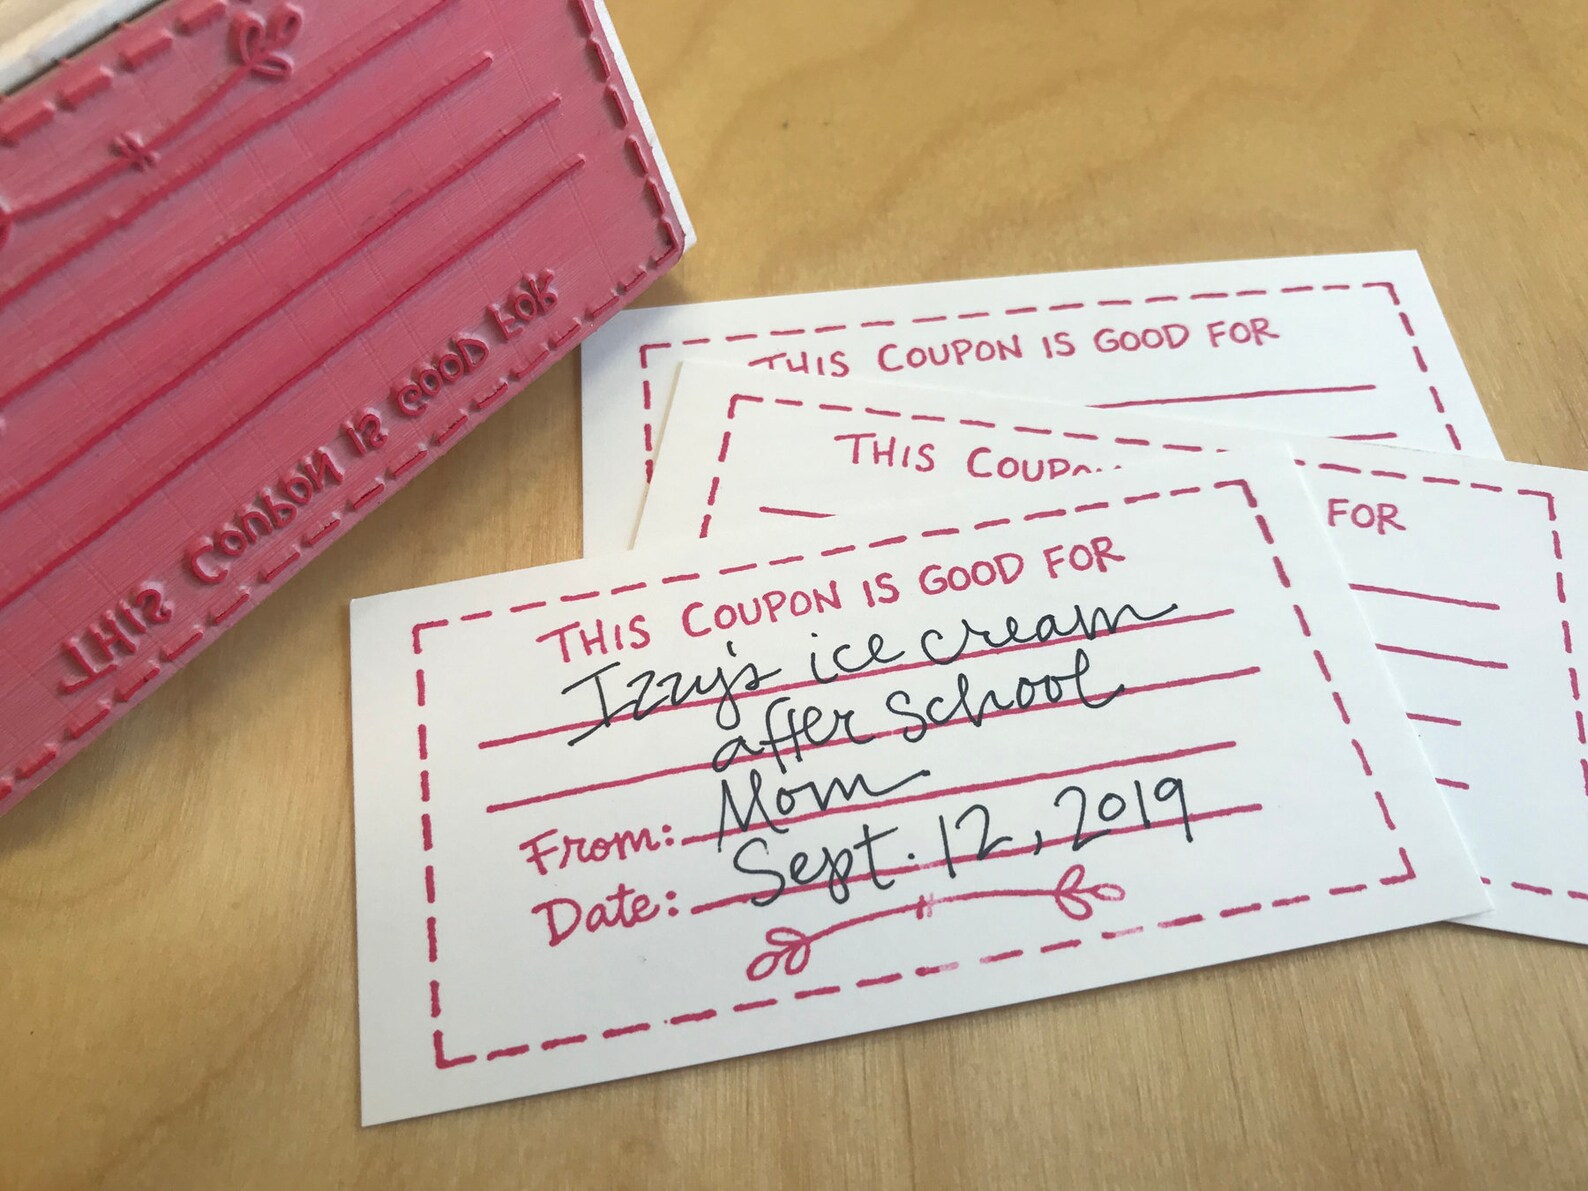 THIS COUPON IS GOOD FOR
THIS COUPON IS GOOD FOR
THIS
FOR
THIS COUPON IS GOOD FOR
Izzy's ice cream
after school
From: Mom
Date: Sept. 12, 2019